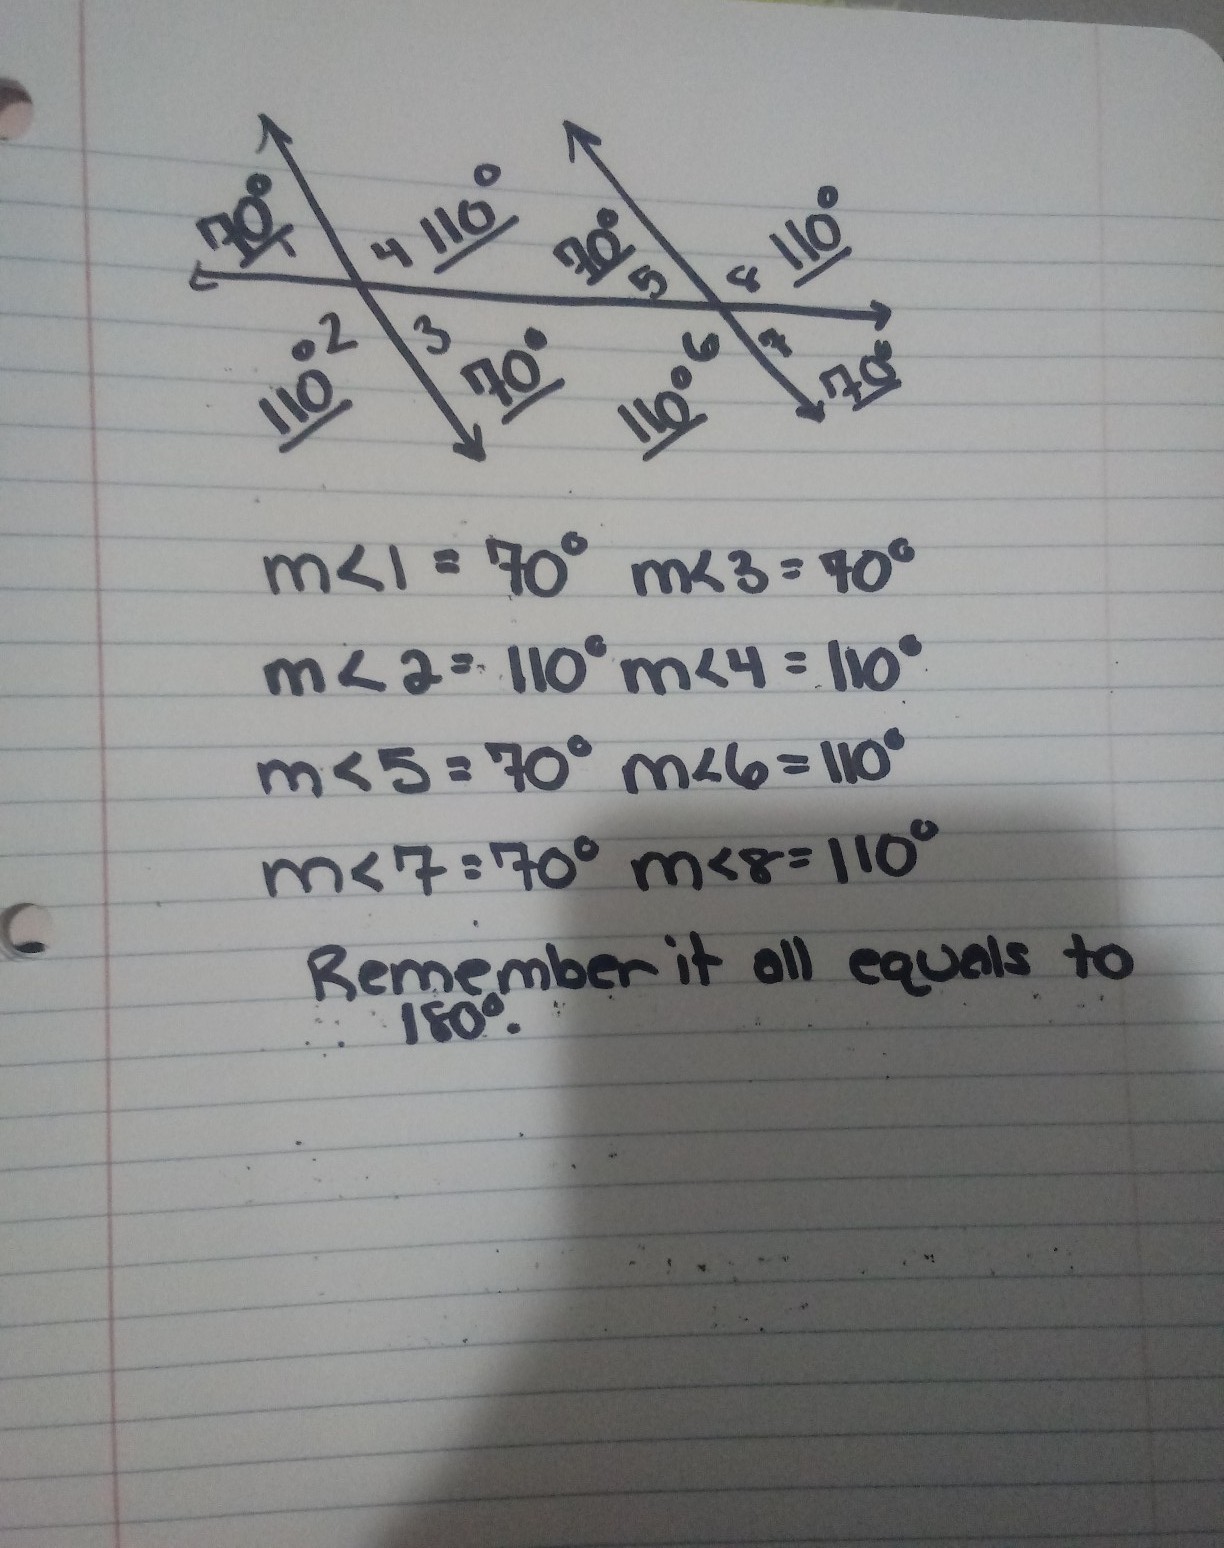 70° 4 110° 70° 5 8 110°
110° 2 3 70° 110° 6 7 70°
m<1 = 70° m<3 = 70°
m<2 = 110° m<4 = 110°
m<5 = 70° m<6 = 110°
m<7 = 70° m<8 = 110°
Remember it all equals to
180°.